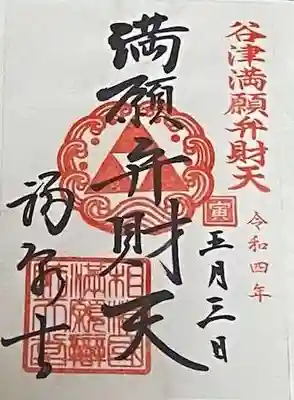 谷津満願弁財天
寅
令和四年
五月三日
満願弁財天